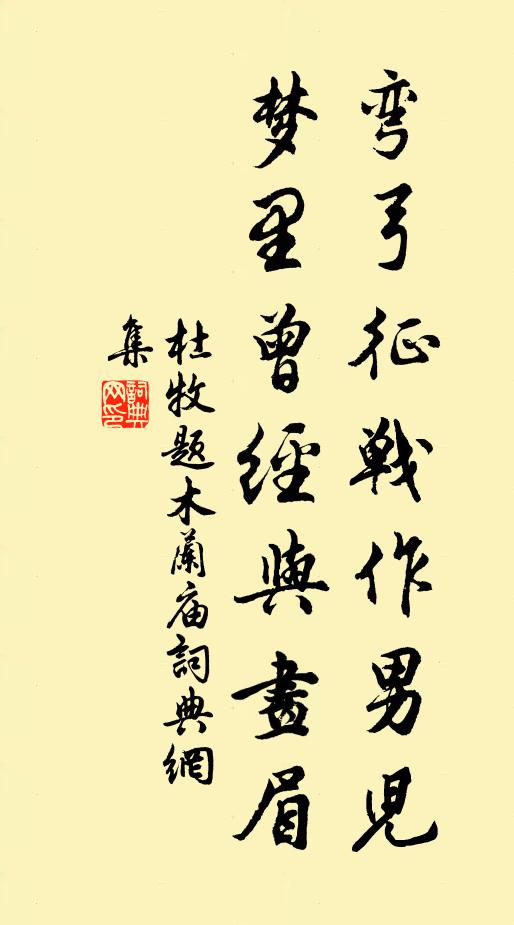 弯弓征戰作男児
梦里曾經與畫眉
杜牧題木蘭庙詞典網
集
詞典网印